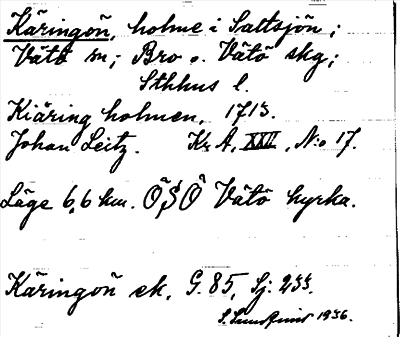 Käringön, holme i Saltsjön;
Vätö sn; Bro o. Vätö skg;
Sthlms l.
Kiäring holmen, 1713.
Johan Leitz. Kr. A, XXVII, N:o 17.
Läge 6,6 km. ÖSÖ Vätö kyrka.
Käringön ek, G. 85, Sj: 233.
1936.